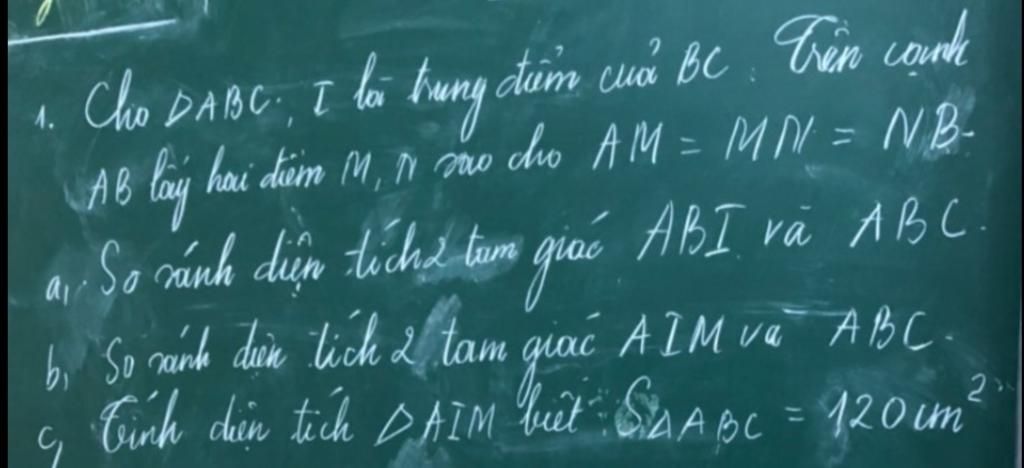 1. Cho △ABC, I là trung điểm cuả BC. Trên cạnh
AB lấy hai điểm M, N sao cho AM = MN = NB.
a, So sánh diện tích 2 tam giác ABI và ABC.
b, So sánh diện tích 2 tam giác AIM và ABC.
c, Tính diện tích △AIM biết: S△ABC = 120cm²